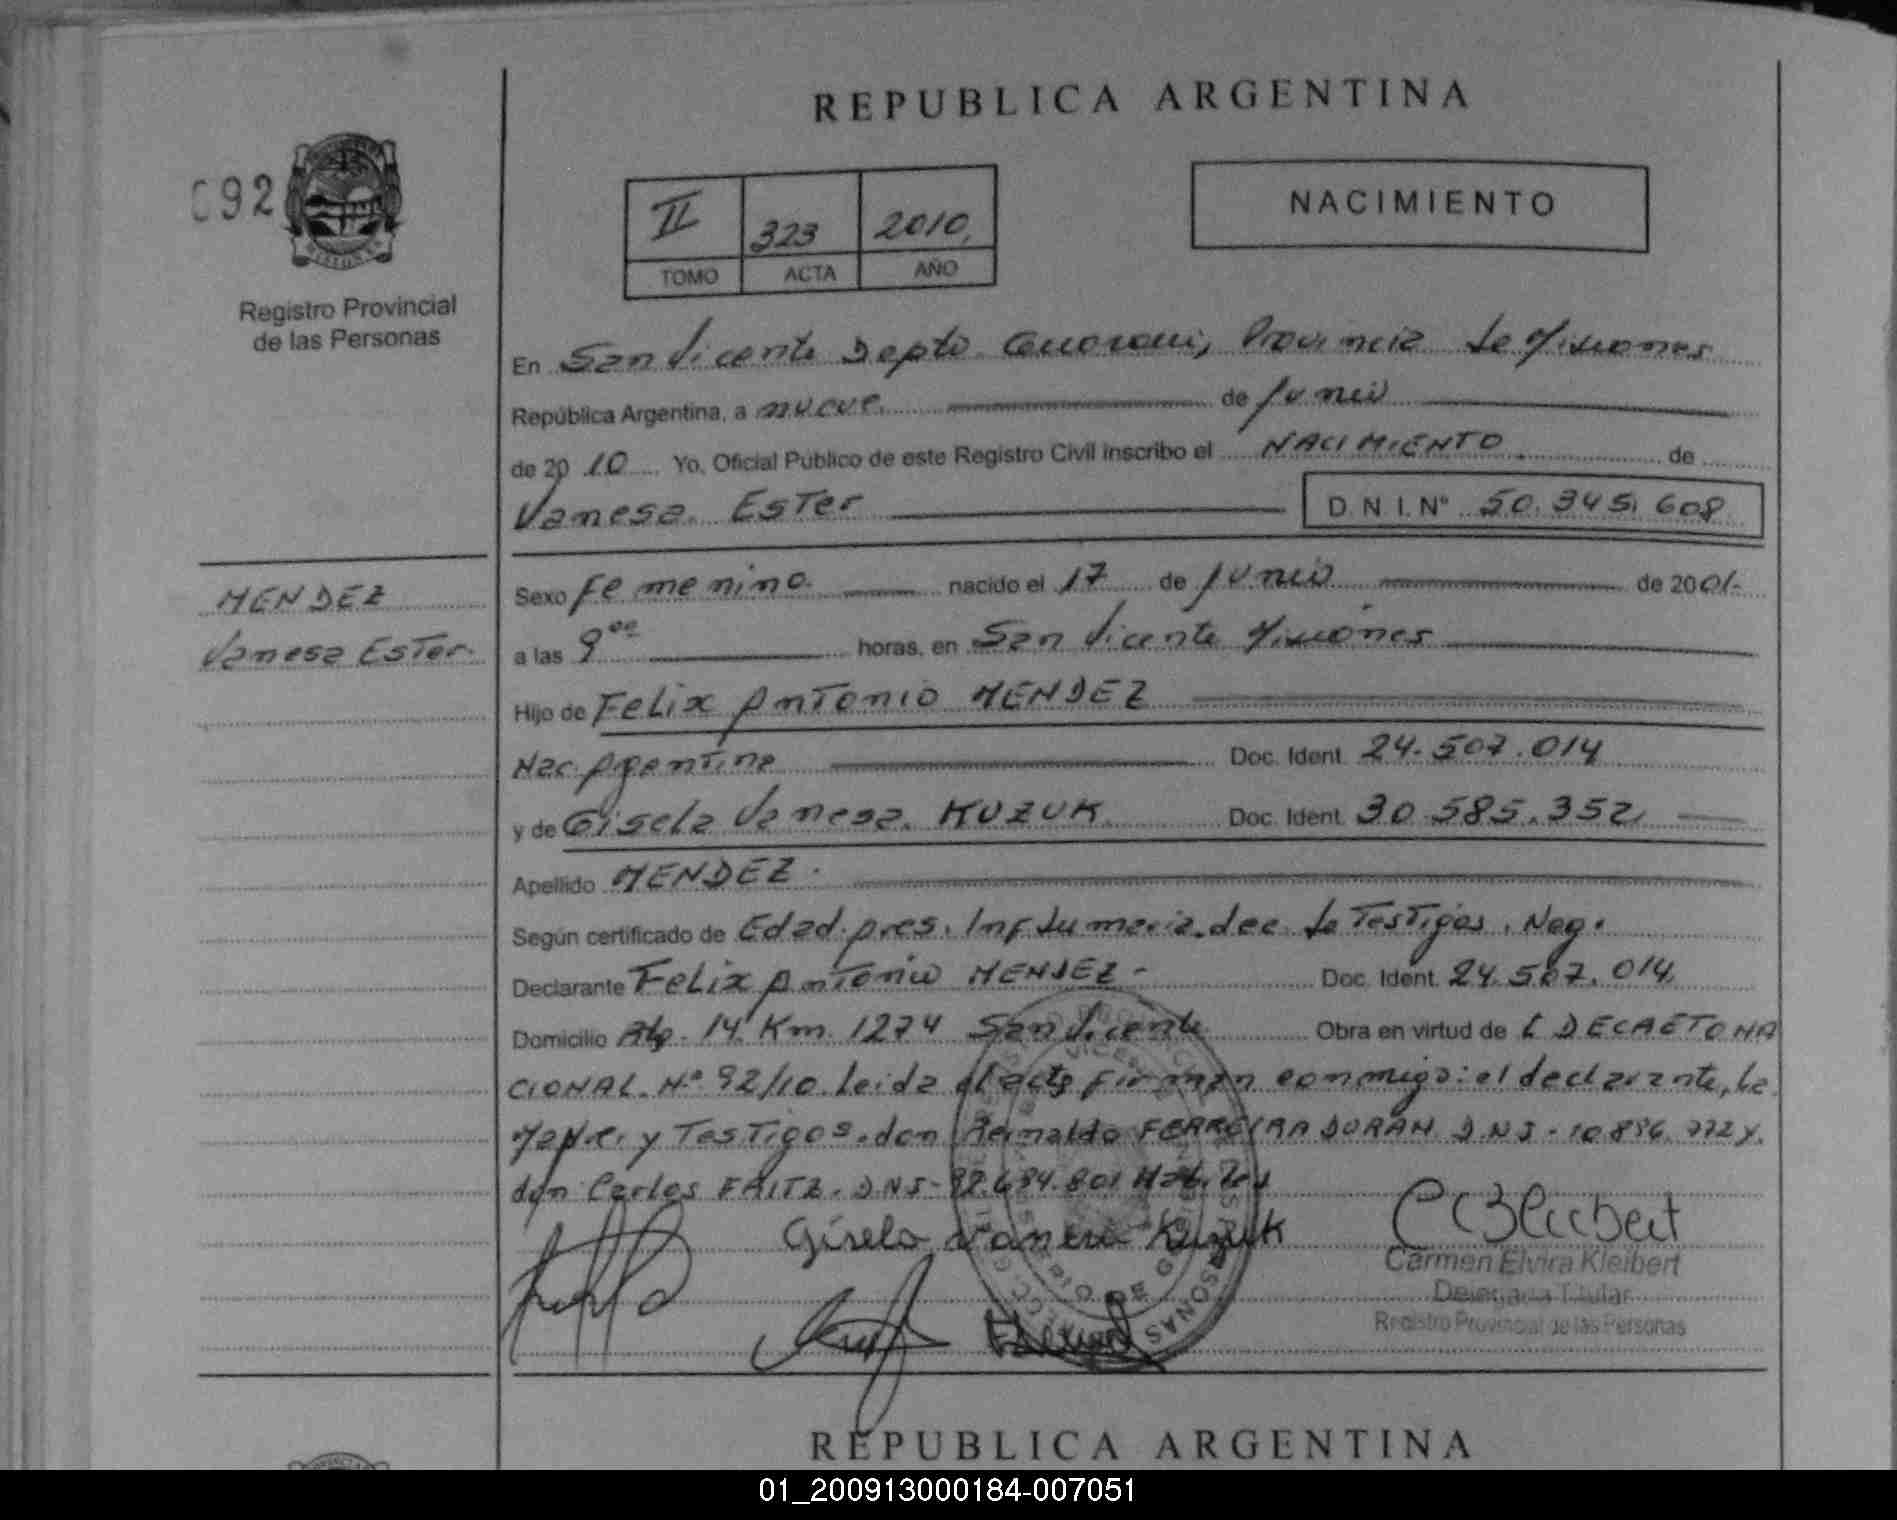 REPUBLICA ARGENTINA
092
II 323 2010
TOMO ACTA AÑO
NACIMIENTO
Registro Provincial
de las Personas
En San Vicente Depto. Guarani, Provincia de Misiones
República Argentina, a nueve de Junio
de 2010 Yo, Oficial Público de este Registro Civil inscribo el NACIMIENTO de
Vanesa Ester D.N.I.Nº 50.345.608
MENDEZ
Vanesa Ester
Sexo Femenino nacido el 17 de Junio de 2001
a las 9⁰⁰ horas, en San Vicente Misiones
Hijo de Felix Antonio MENDEZ
Nac. Argentina Doc. Ident. 24.507.014
y de Gisela Vanesa KUZUK Doc. Ident. 30.585.352
Apellido MENDEZ.
Según certificado de Edad pres. Inf sumaria dec. de Testigos. Neg.
Declarante Felix Antonio MENDEZ - Doc. Ident. 24.507.014
Domicilio 14 Km. 1274 San Vicente Obra en virtud de DECRETO NA
CIONAL Nº 92/10. Leida el acta firman conmigo: el declarante, la
Madre y Testigos. don Reinaldo FERREIRA DURAN D.N.I - 10.896.772 y
don Carlos FRITZ. D.N.I - 92.684.801 Habiles
Gisela Vanesa Kuzuk
Carmen Elvira Kleibert
Delegada Titular
Registro Provincial de las Personas
REPUBLICA ARGENTINA
01_200913000184-007051